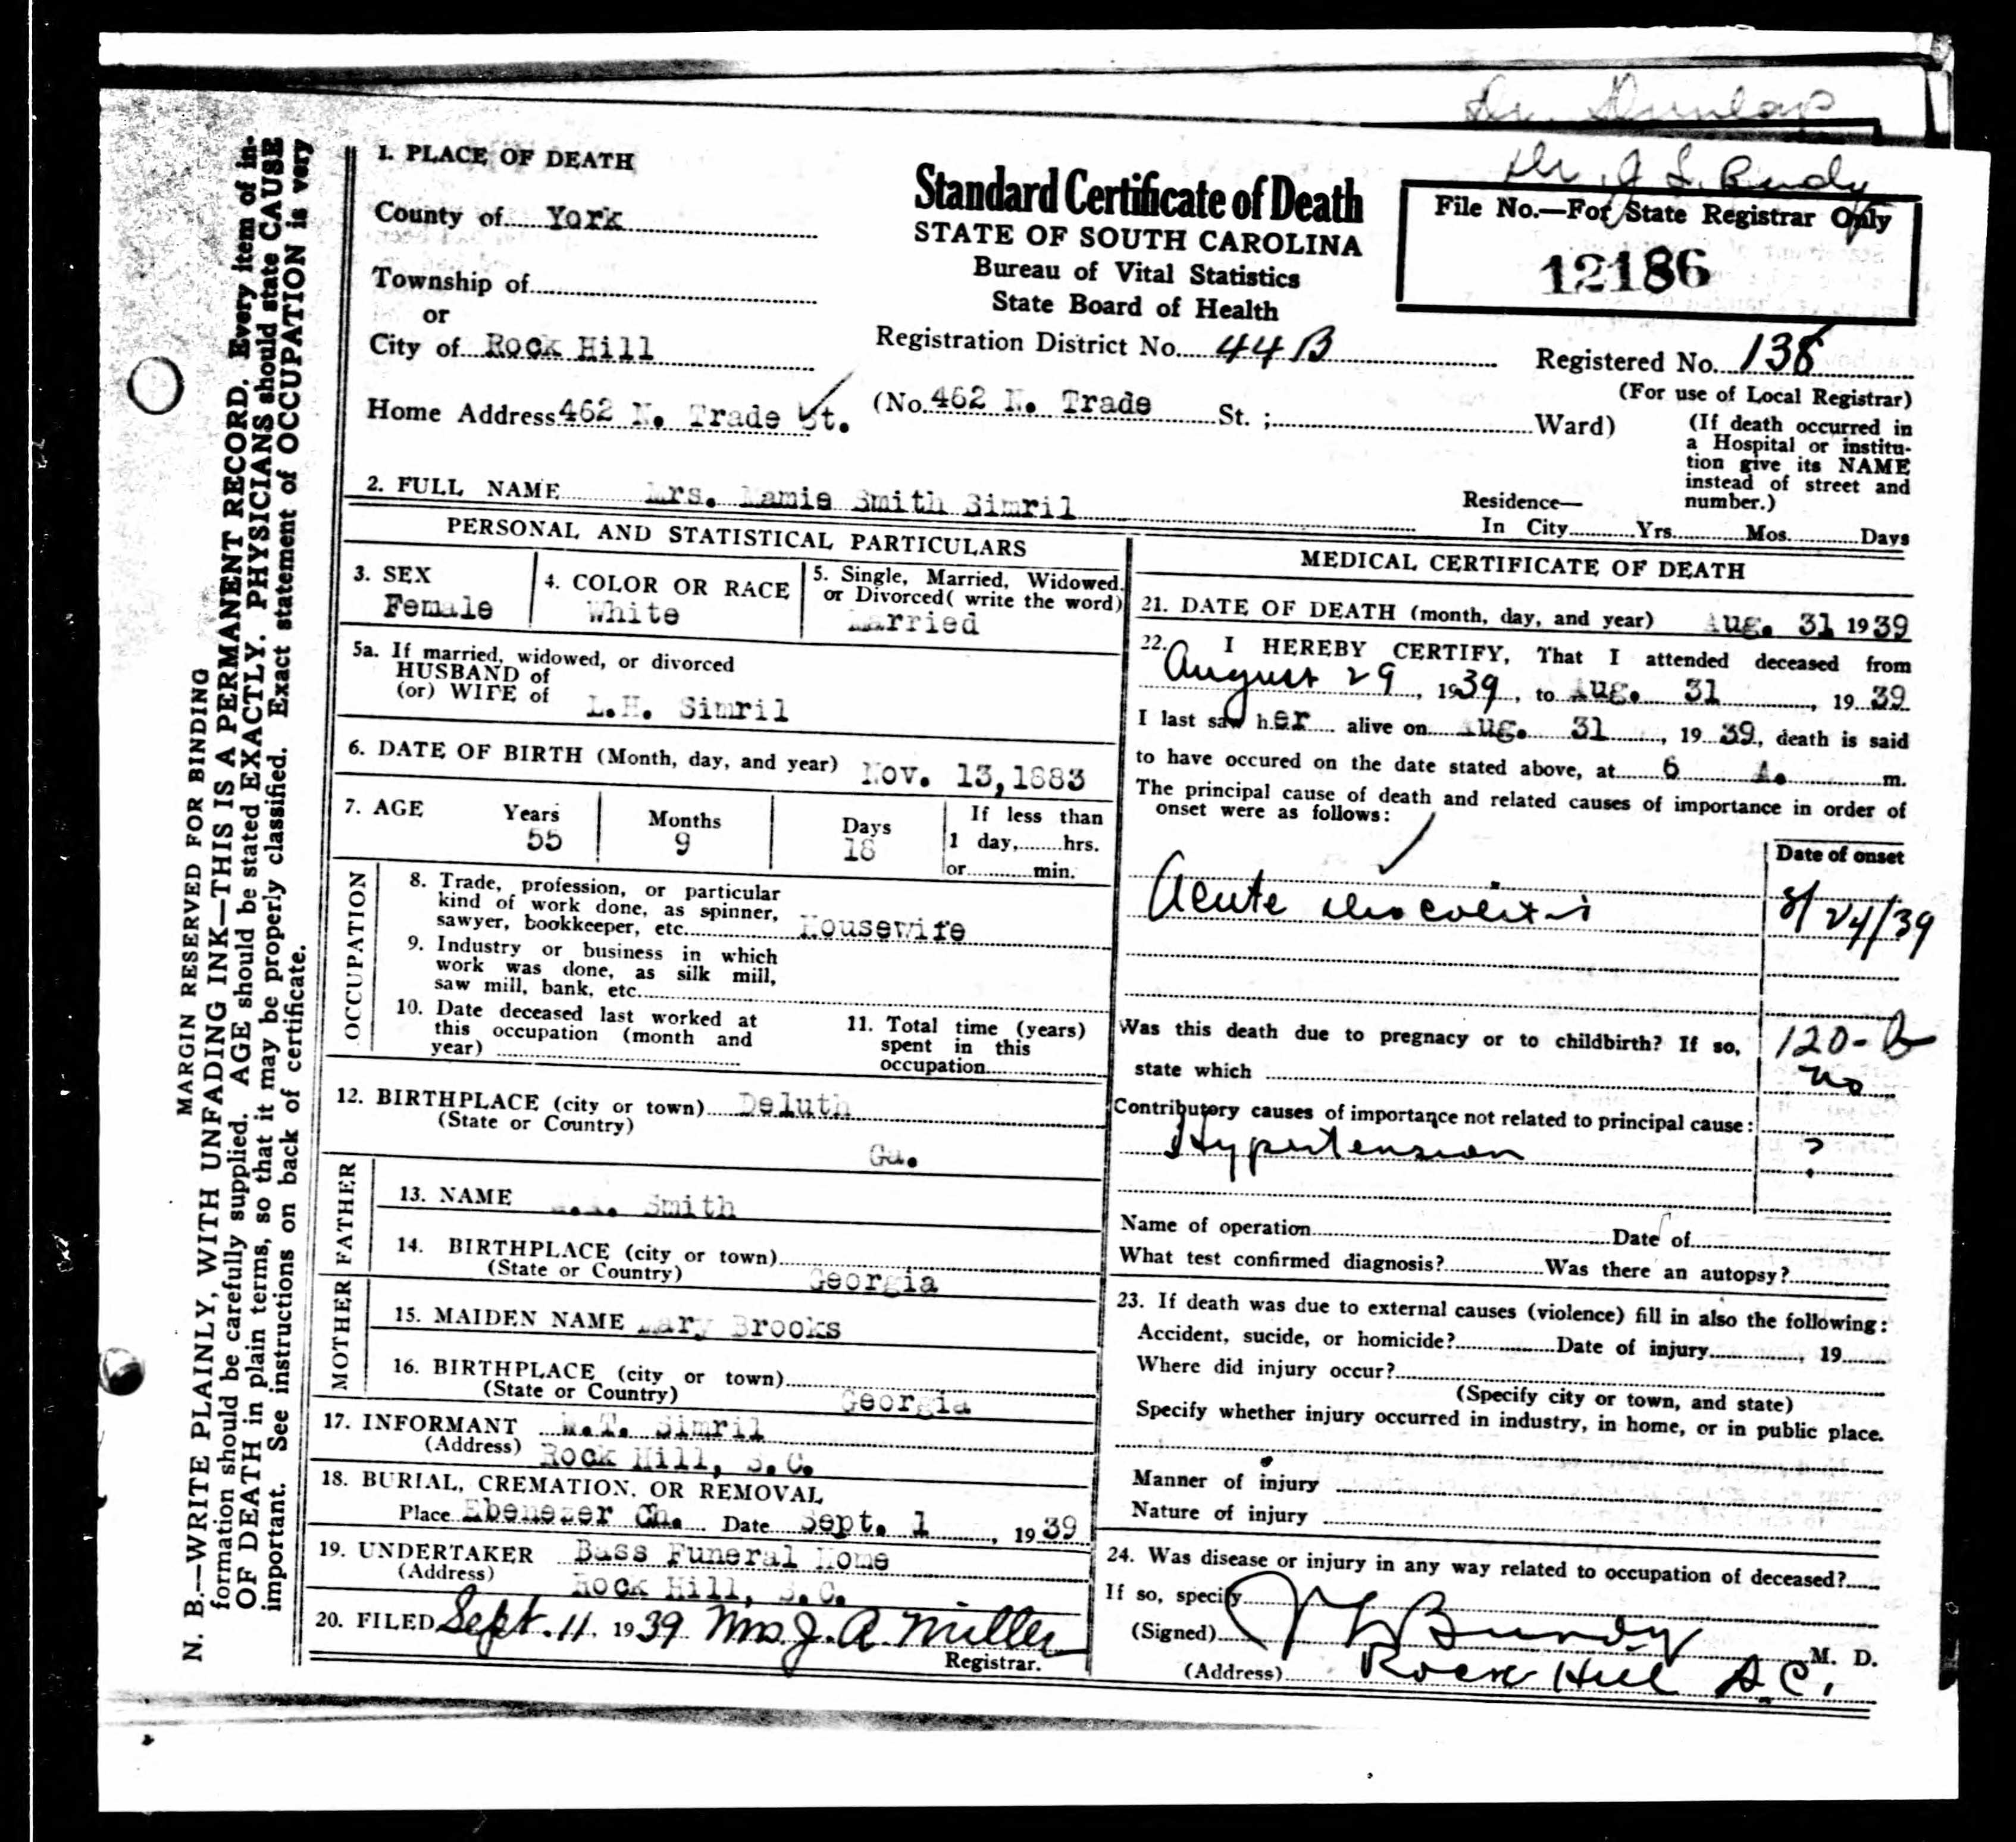 Dr. Dunlap
Dr. J. L. Bundy
1. PLACE OF DEATH
County of York
Township of
or
City of Rock Hill
Home Address 462 N. Trade St.
Standard Certificate of Death
STATE OF SOUTH CAROLINA
Bureau of Vital Statistics
State Board of Health
File No.—For State Registrar Only
12186
Registration District No. 44B
Registered No. 138
(For use of Local Registrar)
(No. 462 N. Trade St. ; Ward)
(If death occurred in
a Hospital or institu-
tion give its NAME
instead of street and
number.)
2. FULL NAME Mrs. Mamie Smith Simril
Residence—
In City Yrs. Mos. Days
PERSONAL AND STATISTICAL PARTICULARS
3. SEX
Female
4. COLOR OR RACE
White
5. Single, Married, Widowed,
or Divorced( write the word)
Married
5a. If married, widowed, or divorced
HUSBAND of
(or) WIFE of
L.H. Simril
6. DATE OF BIRTH (Month, day, and year) Nov. 13,1883
7. AGE
Years
55
Months
9
Days
18
If less than
1 day, hrs.
or min.
OCCUPATION
8. Trade, profession, or particular
kind of work done, as spinner,
sawyer, bookkeeper, etc. Housewife
9. Industry or business in which
work was done, as silk mill,
saw mill, bank, etc.
10. Date deceased last worked at
this occupation (month and
year)
11. Total time (years)
spent in this
occupation
12. BIRTHPLACE (city or town) Deluth
(State or Country)
Ga.
FATHER
13. NAME Smith
14. BIRTHPLACE (city or town)
(State or Country) Georgia
MOTHER
15. MAIDEN NAME Mary Brooks
16. BIRTHPLACE (city or town)
(State or Country) Georgia
17. INFORMANT W.T. Simril
(Address) Rock Hill, S.C.
18. BURIAL, CREMATION, OR REMOVAL
Place Ebenezer Ch. Date Sept. 1, 1939
19. UNDERTAKER Bass Funeral Home
(Address) Rock Hill, S.C.
20. FILED Sept. 11. 1939 Mrs. J. A. Miller
Registrar.
MEDICAL CERTIFICATE OF DEATH
21. DATE OF DEATH (month, day, and year) Aug. 31 1939
22. I HEREBY CERTIFY, That I attended deceased from
August 29, 1939, to Aug. 31, 1939
I last saw her alive on Aug. 31, 1939, death is said
to have occured on the date stated above, at 6 A. m.
The principal cause of death and related causes of importance in order of
onset were as follows:
Date of onset
Acute ileocolitis 8/24/39
Was this death due to pregnacy or to childbirth? If so, 120-B
state which no
Contributory causes of importance not related to principal cause:
Hypertension ?
Name of operation Date of
What test confirmed diagnosis? Was there an autopsy?
23. If death was due to external causes (violence) fill in also the following:
Accident, sucide, or homicide? Date of injury , 19
Where did injury occur?
(Specify city or town, and state)
Specify whether injury occurred in industry, in home, or in public place.
Manner of injury
Nature of injury
24. Was disease or injury in any way related to occupation of deceased?
If so, specify
(Signed) J L Bundy M. D.
(Address) Rock Hill S.C.
MARGIN RESERVED FOR BINDING
N. B.—WRITE PLAINLY, WITH UNFADING INK—THIS IS A PERMANENT RECORD. Every item of in-
formation should be carefully supplied. AGE should be stated EXACTLY. PHYSICIANS should state CAUSE
OF DEATH in plain terms, so that it may be properly classified. Exact statement of OCCUPATION is very
important. See instructions on back of certificate.